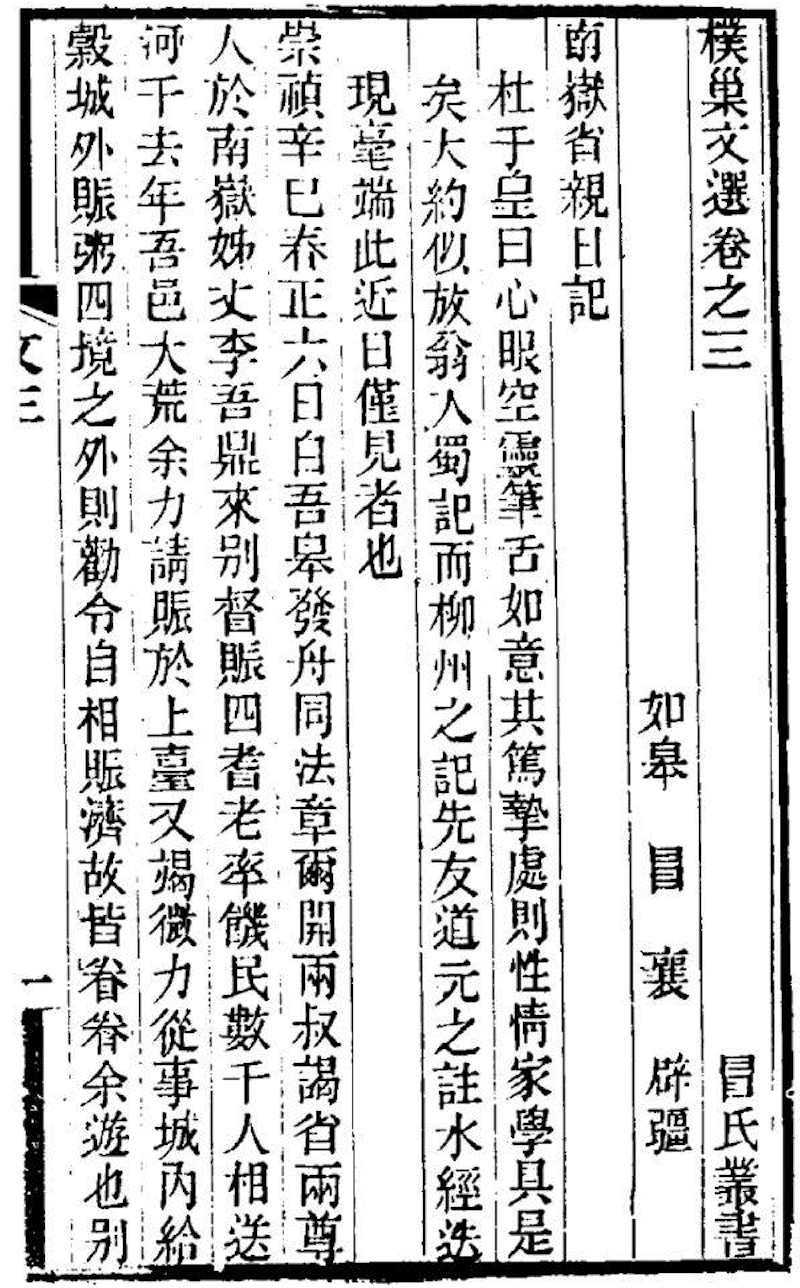 樸巢文選卷之三 冒氏叢書
如皋 冒 襄 辟疆
南嶽省親日記
杜于皇曰心眼空靈筆舌如意其篤摯處則性情家學具是
矣大約似放翁入蜀記而柳州之記先友道元之註水經迭
現毫端此近日僅見者也
崇禎辛巳春正六日自吾皋發舟同法章爾開兩叔謁省兩尊
人於南嶽姊丈李吾鼎來別督賑四耆老率饑民數千人相送
河干去年吾邑大荒余力請賑於上臺又竭微力從事城內給
穀城外賑粥四境之外則勸令自相賑濟故皆眷眷余遊也別
文三
一